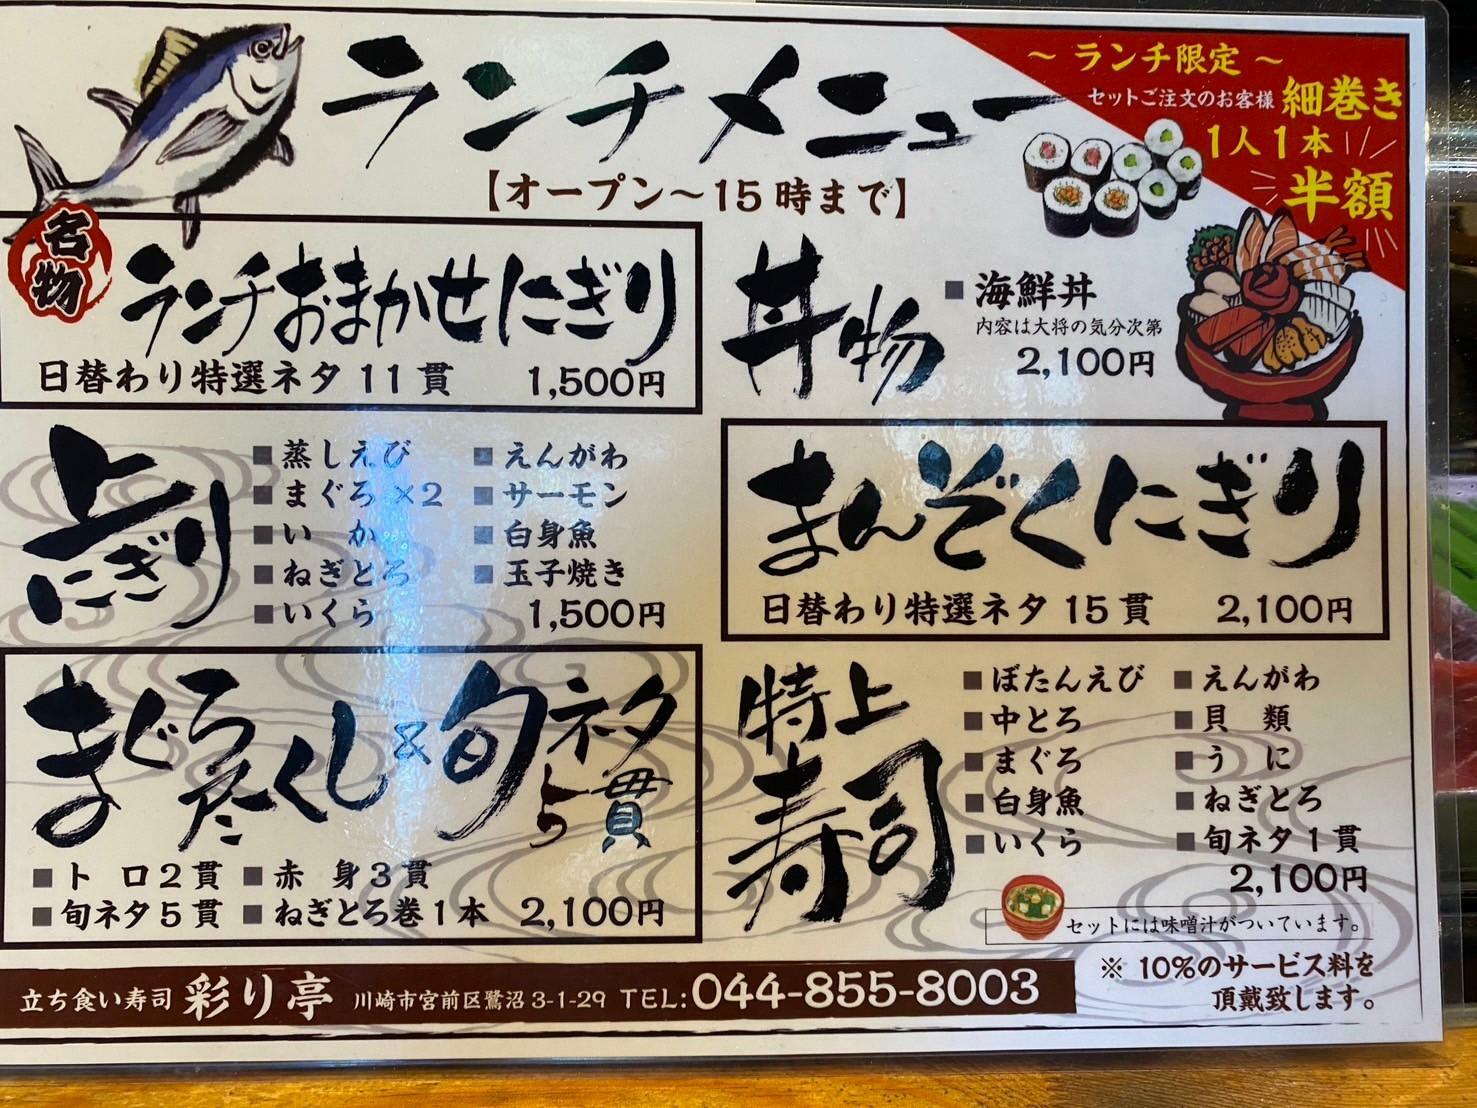 ランチメニュー
【オープン〜15時まで】
〜 ランチ限定 〜
セットご注文のお客様 細巻き
1人1本
半額
名物
ランチおまかせにぎり
日替わり特選ネタ 11貫 1,500円
丼物
■海鮮丼
内容は大将の気分次第
2,100円
上にぎり
■蒸しえび ■えんがわ
■まぐろ×2 ■サーモン
■いか ■白身魚
■ねぎとろ ■玉子焼き
■いくら 1,500円
まんぞくにぎり
日替わり特選ネタ 15貫 2,100円
まぐろ尽くし&旬ネタ5貫
■トロ2貫 ■赤身3貫
■旬ネタ5貫 ■ねぎとろ巻1本 2,100円
特上寿司
■ぼたんえび ■えんがわ
■中とろ ■貝類
■まぐろ ■うに
■白身魚 ■ねぎとろ
■いくら ■旬ネタ1貫
2,100円
セットには味噌汁がついています。
※ 10%のサービス料を
頂戴致します。
立ち食い寿司 彩り亭 川崎市宮前区鷺沼3-1-29 TEL:044-855-8003